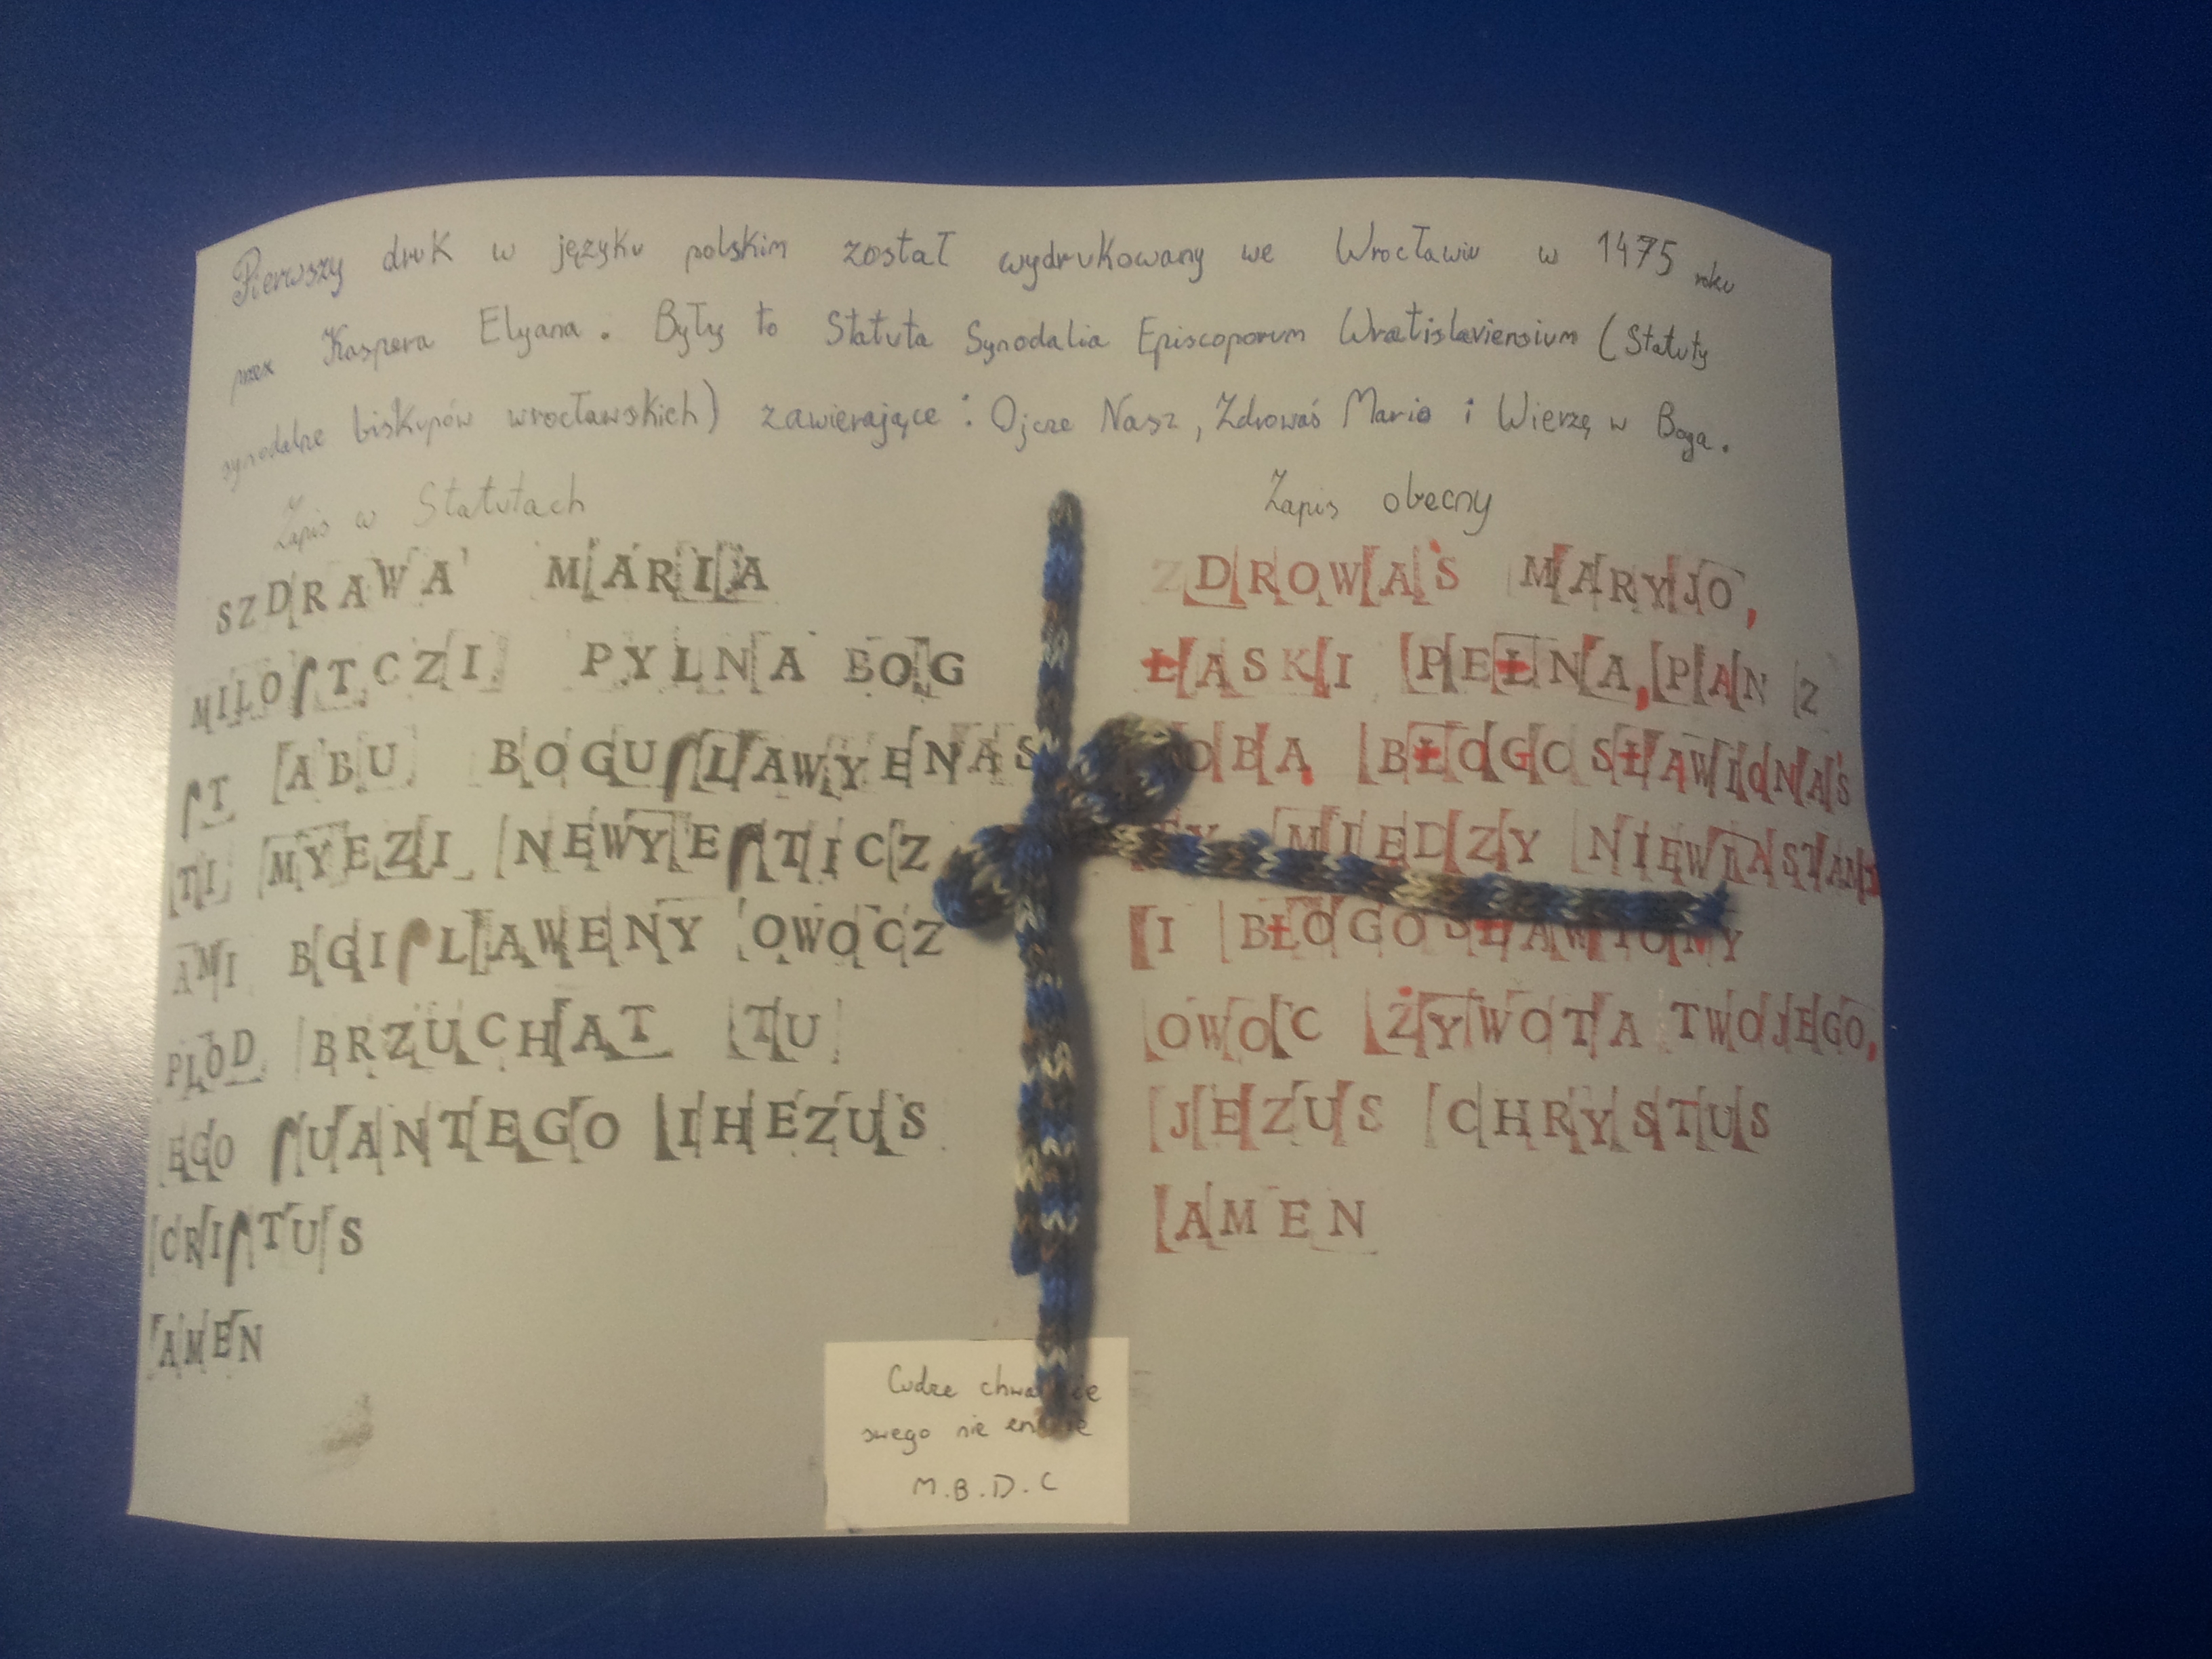 Pierwszy druk w języku polskim został wydrukowany we Wrocławiu w 1475 roku
przez Kaspera Elyana. Były to Statuta Synodalia Episcoporum Wratislaviensium (Statuty
synodalne biskupów wrocławskich) zawierające: Ojcze Nasz, Zdrowaś Mario i Wierzę w Boga.
Zapis w Statutach
SZDRAWA' MARIA
MILOſTCZI PYLNA BOG
ſT ABU BOGUſLAWYENAS
TI MYEZI NEWYEſTICZ
AMI BGIſLAWENY OWOCZ
PLOD BRZUCHAT TU
EGO ſUANTEGO IHEZUS
CRIſTUS
AMEN
Zapis obecny
ZDROWAŚ MARYJO,
ŁASKI PEŁNA, PAN Z
OBA BŁOGOSŁAWIONAŚ
MIEDZY NIEWIASTAMI
I BŁOGOSŁAWIONY
OWOC ŻYWOTA TWOJEGO,
JEZUS CHRYSTUS
AMEN
Cudze
swego nie
M.B.D.C